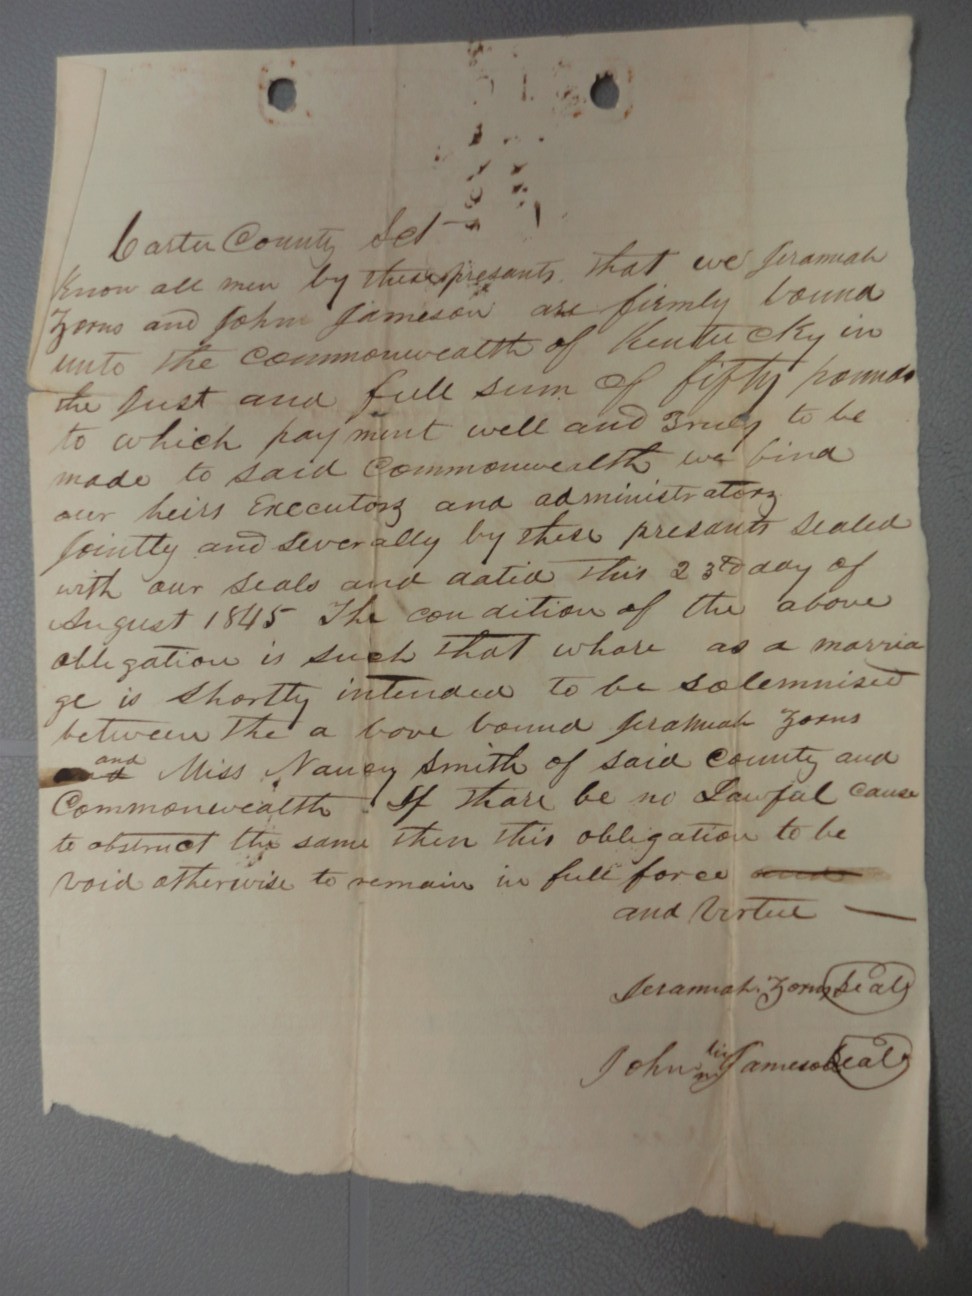 Carter County Sct
Know all men by these presants that we Jeramiah
Zorns and John Jameson are firmly bound
unto the commonwealth of Kentucky in
the Just and full sum of fifty pounds
to which payment well and Truly to be
made to said Commonwealth we bind
our heirs Executors and administrators
Jointly and severally by these presants sealed
with our seals and datid this 23rd day of
August 1845 The condition of the above
obligation is such that whare as a marria
ge is shortly intended to be solemnised
between the a bove bound Jeramiah Zorns
and Miss Nancy Smith of said county and
Commonwealth If thare be no Lawful cause
to obstruct the same then this obligation to be
void otherwise to remain in full force and
and Virtue
Jeramiah Zorns Seal
John Jameson Seal